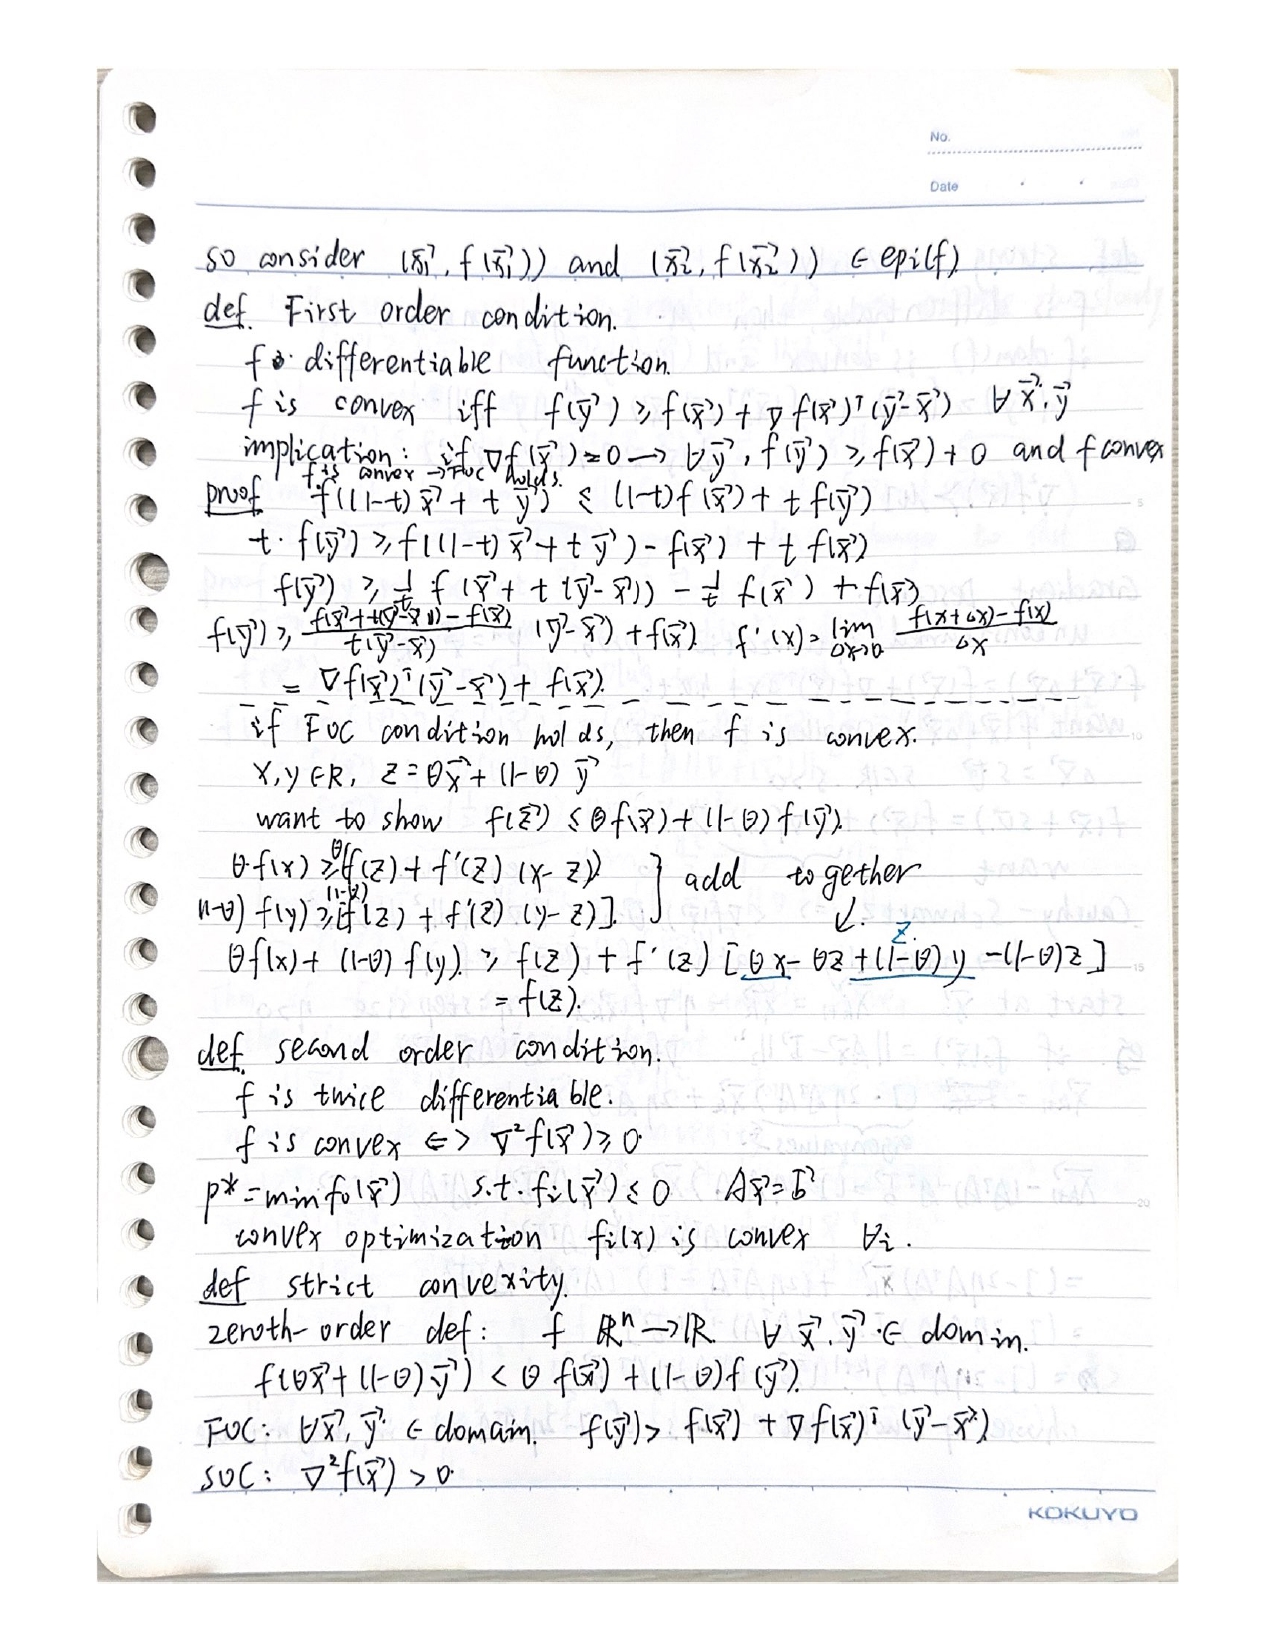 No.
Date
so consider (x⃗₁, f(x⃗₁)) and (x⃗₂, f(x⃗₂)) ∈ epi(f)
def. First order condition.
f differentiable function.
f is convex iff f(y⃗) ≥ f(x⃗) + ∇f(x⃗)ᵀ(y⃗-x⃗) ∀x⃗,y⃗
implication: if ∇f(x⃗)=0 → ∀y⃗, f(y⃗) ≥ f(x⃗)+0 and f convex
f is convex → FOC holds.
proof f((1-t)x⃗ + t y⃗) ≤ (1-t)f(x⃗) + t f(y⃗)
t·f(y⃗) ≥ f((1-t)x⃗+t y⃗) - f(x⃗) + t f(x⃗)
f(y⃗) ≥ 1/t f(x⃗ + t(y⃗-x⃗)) - 1/t f(x⃗) + f(x⃗)
f(y⃗) ≥ (f(x⃗+t(y⃗-x⃗))-f(x⃗))/(t(y⃗-x⃗)) (y⃗-x⃗)+f(x⃗) f'(x)=lim Δx→0 (f(x+Δx)-f(x))/Δx
= ∇f(x⃗)ᵀ(y⃗-x⃗)+ f(x⃗).
if FOC condition holds, then f is convex.
x,y∈R, z=θx⃗+(1-θ)y⃗
want to show f(z⃗) ≤ θf(x⃗)+(1-θ)f(y⃗).
θ·f(x) ≥ θ(f(z)+f'(z)(x-z)) } add together
(1-θ) f(y) ≥ (1-θ)[f(z) + f'(z)(y-z)].
z.
θf(x)+(1-θ)f(y) ≥ f(z)+f'(z)[θx-θz+(1-θ)y-(1-θ)z]
= f(z).
def second order condition.
f is twice differentiable.
f is convex <=> ∇²f(x⃗) ≥ 0
p*=min f₀(x⃗) s.t. fᵢ(x⃗) ≤ 0 Ax⃗=b⃗
convex optimization fᵢ(x) is convex ∀i.
def strict convexity.
zeroth-order def: f ℝⁿ→ℝ. ∀x⃗,y⃗ ∈ domin.
f(θx⃗+(1-θ)y⃗) < θf(x⃗)+(1-θ)f(y⃗).
FOC: ∀x⃗,y⃗ ∈ domain. f(y⃗)> f(x⃗) + ∇f(x⃗)ᵀ(y⃗-x⃗)
SOC: ∇²f(x⃗) > 0
KOKUYO